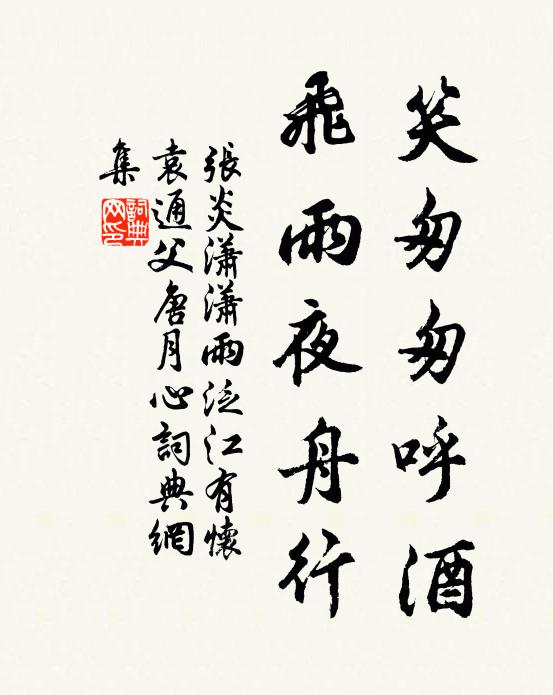 笑匆匆呼酒
飛雨夜舟行
張炎瀟瀟雨泛江有懷
袁通父唐月心詞典網
集
詞典
网印